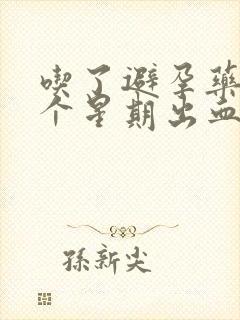 喫了避孕藥
个星期出血
孫新尖